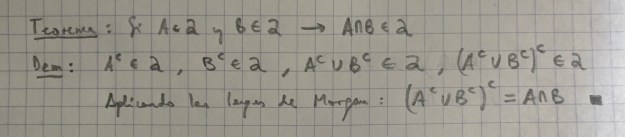 Teorema: Si A ∈ 𝒜 y B ∈ 𝒜 → A∩B ∈ 𝒜
Dem: Aᶜ ∈ 𝒜, Bᶜ ∈ 𝒜, Aᶜ ∪ Bᶜ ∈ 𝒜, (Aᶜ ∪ Bᶜ)ᶜ ∈ 𝒜
Aplicando las leyes de Morgan: (Aᶜ ∪ Bᶜ)ᶜ = A∩B ■